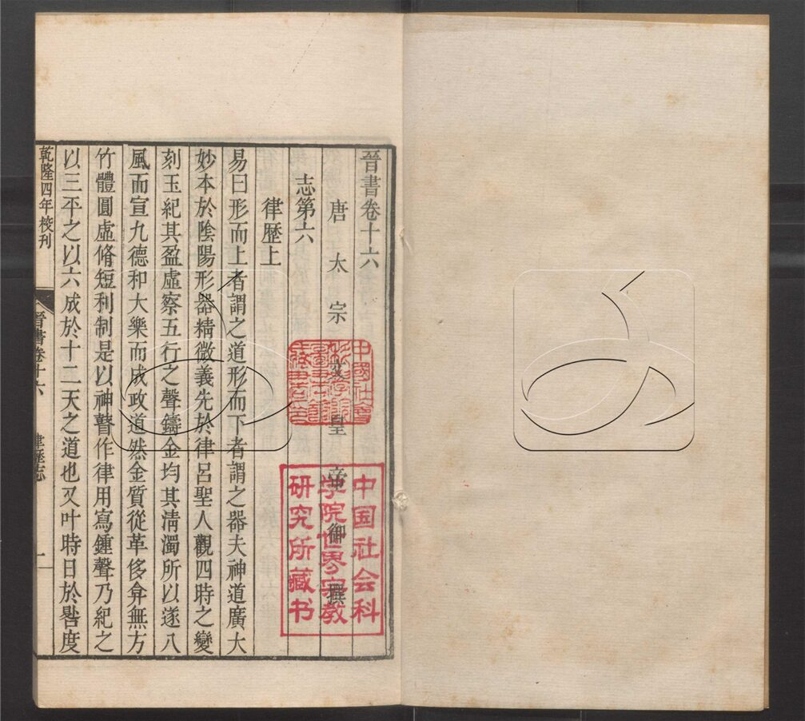 晉書卷十六
唐太宗文皇帝御撰
志第六
律歷上
易曰形而上者謂之道形而下者謂之器夫神道廣大
妙本於陰陽形器精微義先於律呂聖人觀四時之變
刻玉紀其盈虛察五行之聲鑄金均其清濁所以遂八
風而宣九德和大樂而成政道然金質從革侈弇無方
竹體圓虛脩短利制是以神瞽作律用寫鍾聲乃紀之
以三平之以六成於十二天之道也又叶時日於晷度
乾隆四年校刊
晉書卷十六
律歷志
一
中国社会科
学院世界宗教
研究所藏书